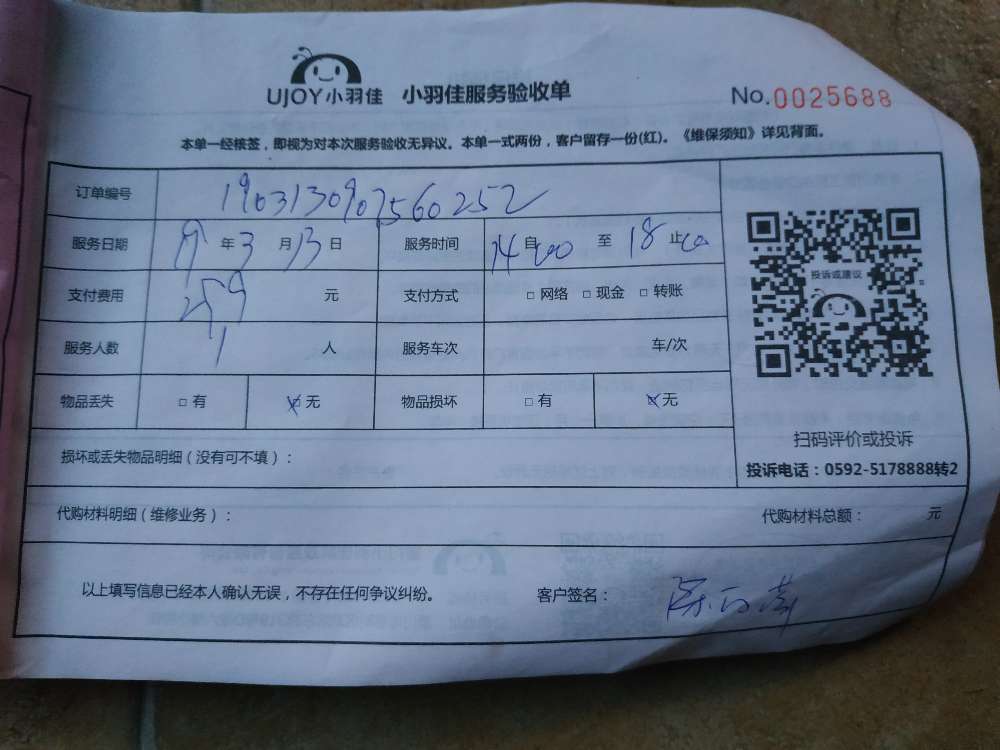 UJOY小羽佳 小羽佳服务验收单 No.0025688
本单一经核签，即视为对本次服务验收无异议。本单一式两份，客户留存一份(红)。《维保须知》详见背面。
订单编号 1903130907560252
服务日期 19年3月13日 服务时间 14自00至18止00
支付费用 259 元 支付方式 □网络 □现金 □转账
服务人数 1 人 服务车次 车/次
物品丢失 □有 ☑无 物品损坏 □有 ☑无
损坏或丢失物品明细（没有可不填）：
代购材料明细（维修业务）： 代购材料总额： 元
以上填写信息已经本人确认无误，不存在任何争议纠纷。 客户签名：
投诉或建议
扫码评价或投诉
投诉电话：0592-5178888转2